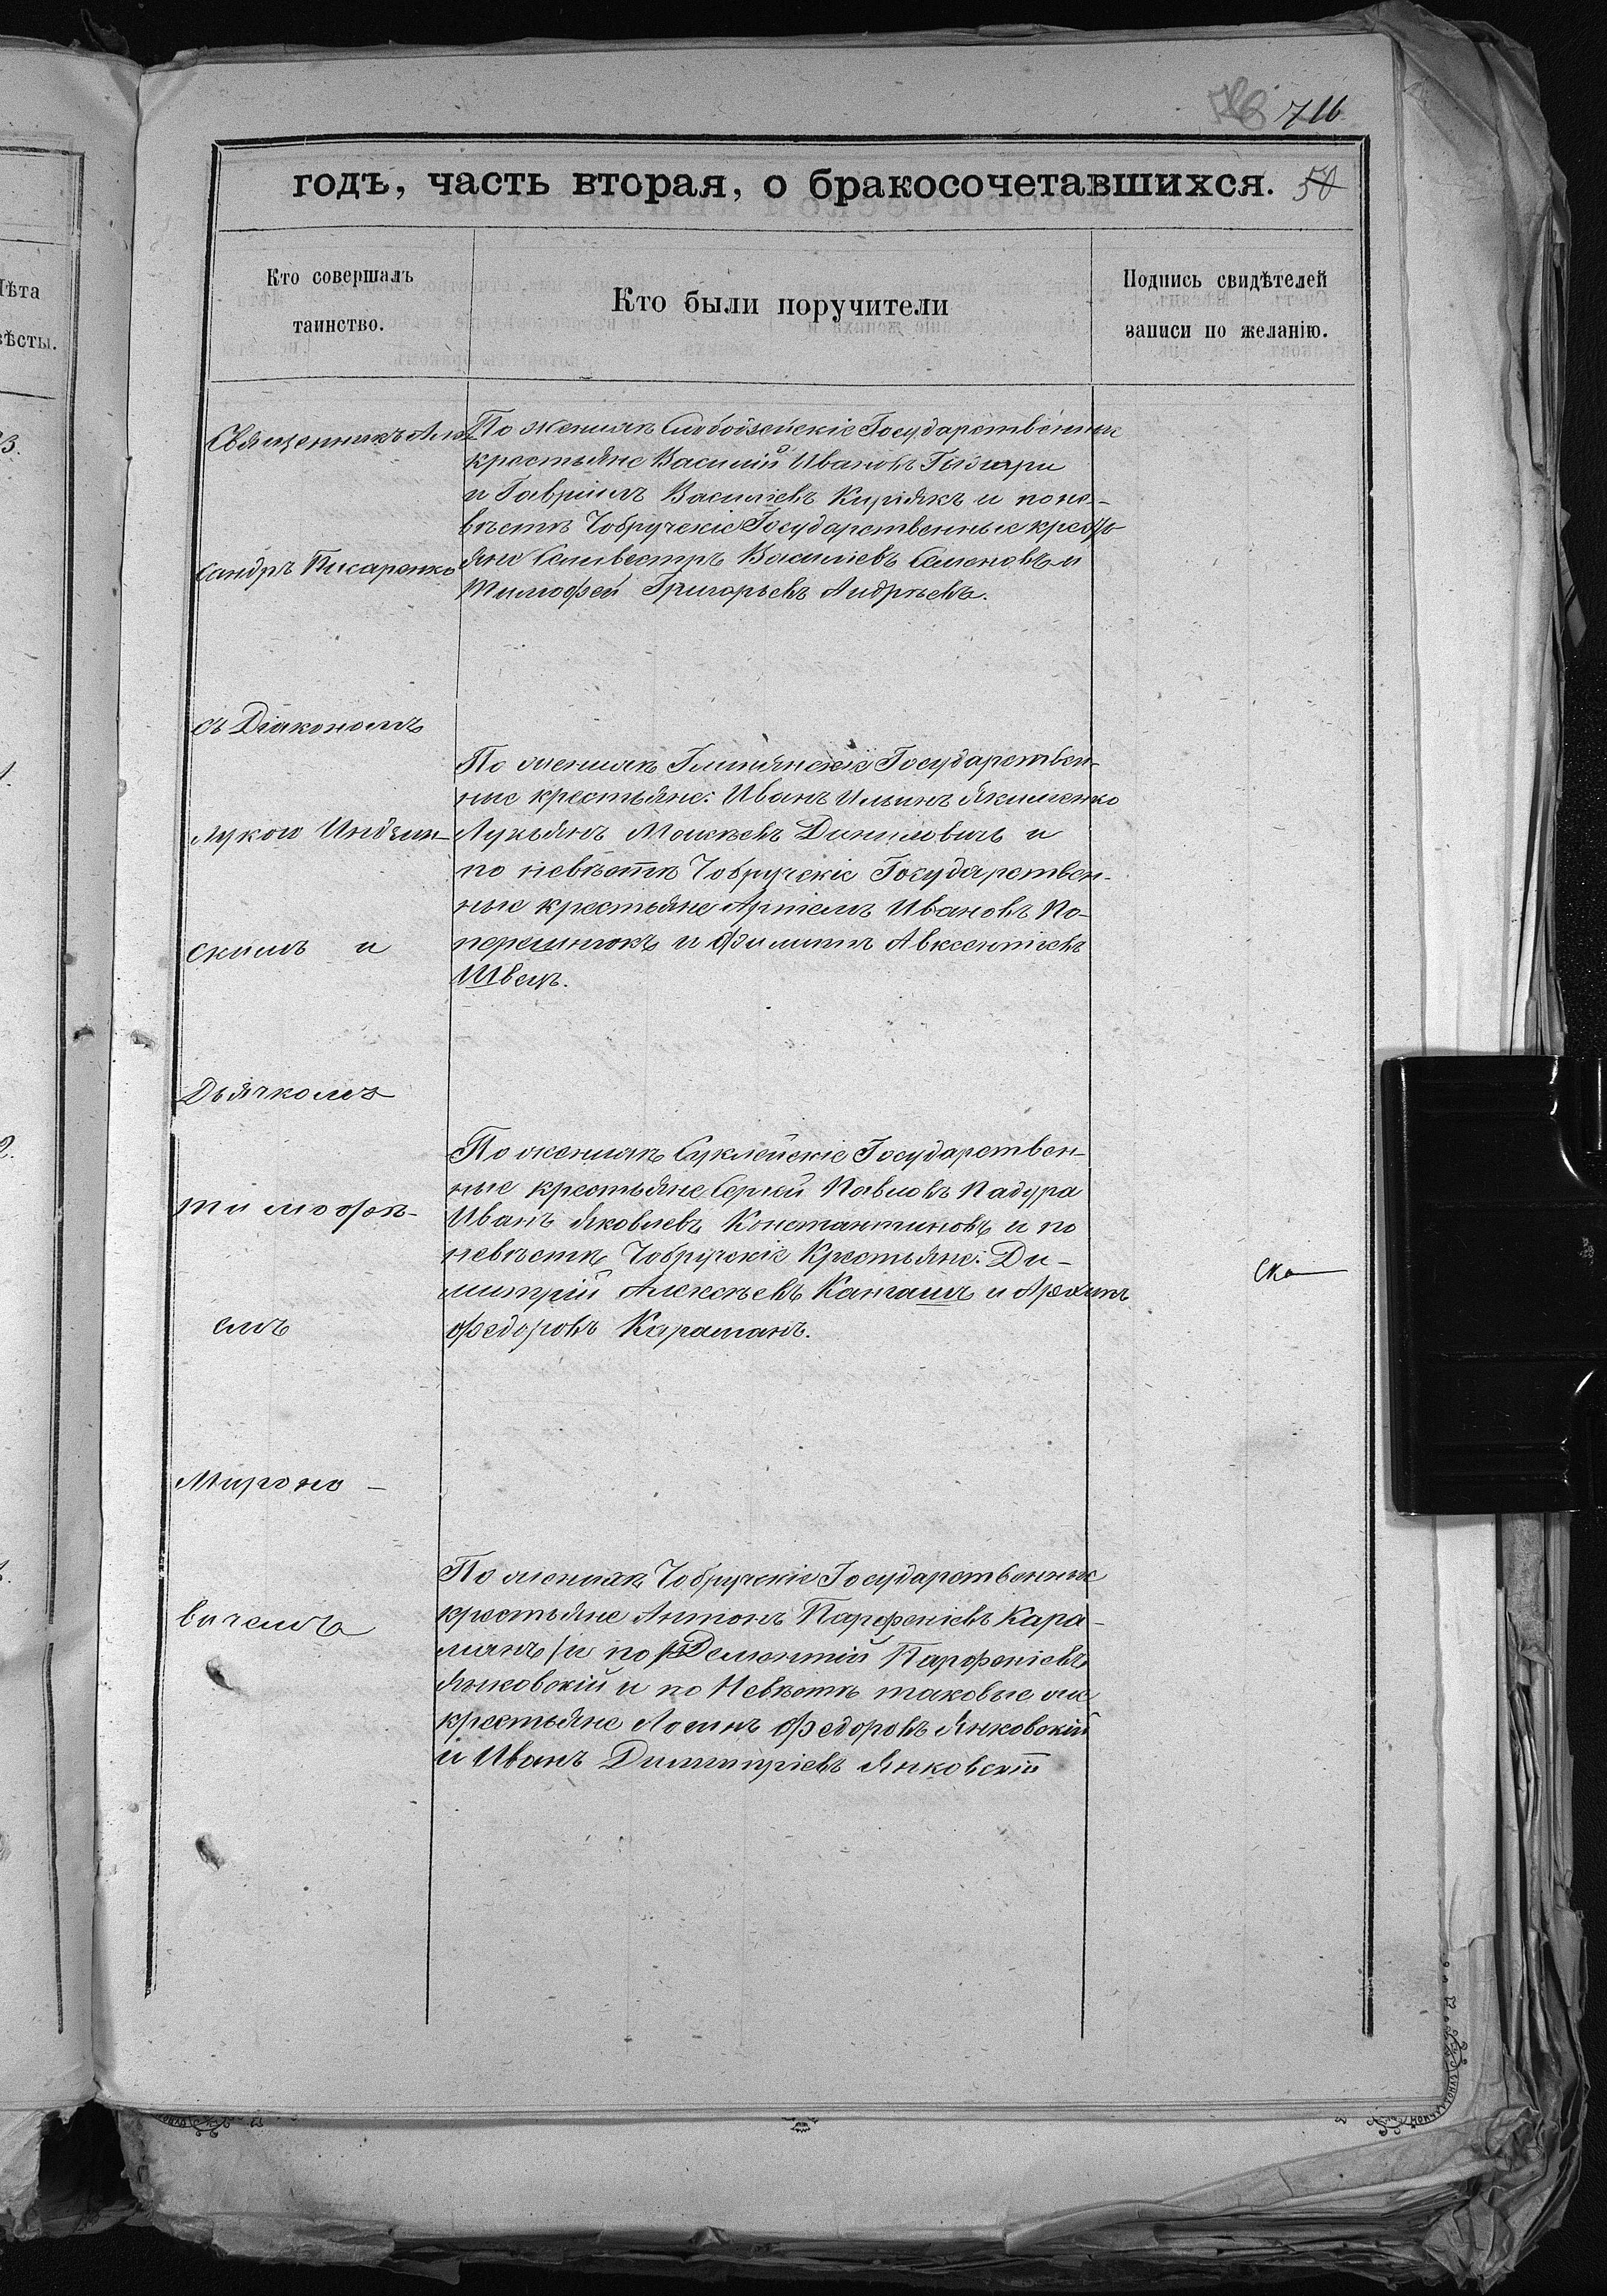 716
годъ, часть вторая, о бракосочетавшихся. 50
Кто совершалъ
таинство.
Кто были поручители
Подпись свидѣтелей
записи по желанію.
Лѣта
вѣсты.
Священникъ Алек
сандръ Писаренко
съ Діакономъ
Лукою
скимъ и
Дьячкомъ
Тимофе-
емъ
Мироно-
вичемъ
По женихѣ Слободзейскіе Государственные
крестьяне Василій Ивановъ
и Гавріилъ Василіевъ Киріякъ и по не-
вѣстѣ Чобручскіе Государственные кресть
яне Селивестръ Василіевъ Семеновъ и
Тимофей Григорьевъ Андрѣевъ.
По женихѣ Глинянскіе Государствен-
ные крестьяне: Иванъ Ильинъ Якименко
Лукьянъ Моисѣевъ Даниловичъ и
по невѣстѣ Чобручскіе Государствен-
ные крестьяне Артемъ Ивановъ По-
перешнюкъ и Филиппъ Авксентіевъ
Швецъ.
По женихѣ Суклейскіе Государствен-
ные крестьяне Сергѣй Павловъ Падура
Иванъ Яковлевъ Константиновъ и по
невѣстѣ Чобручскіе Крестьяне: Ди-
митрій Алексѣевъ Кангашъ и Архипъ
Федоровъ Караманъ.
По женихѣ Чобручскіе Государственные
крестьяне Антонъ Парфеніевъ Кара-
манъ и по Дементій Парфеніевъ
Янковскій и по Невѣстѣ таковые же
крестьяне Логинъ Федоровъ Янковскій
и Иванъ Димитріевъ Янковскій
ска